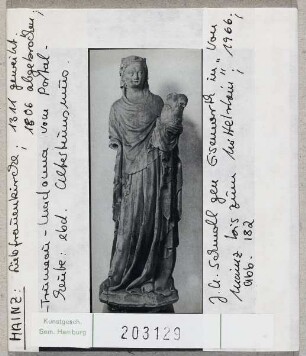 MAINZ: Liebfrauenkirche; 1311 geweiht
1806 abgebrochen;
-Trumeau-Madonna vom Portal-
heute: ebd. Altertumsmus.
J.A. Schmoll gen. Eisenwerth in "Von
Mainz bis zum Mittelrhein"; 1966;
Abb. 182
Kunstgesch.
Sem. Hamburg
203129